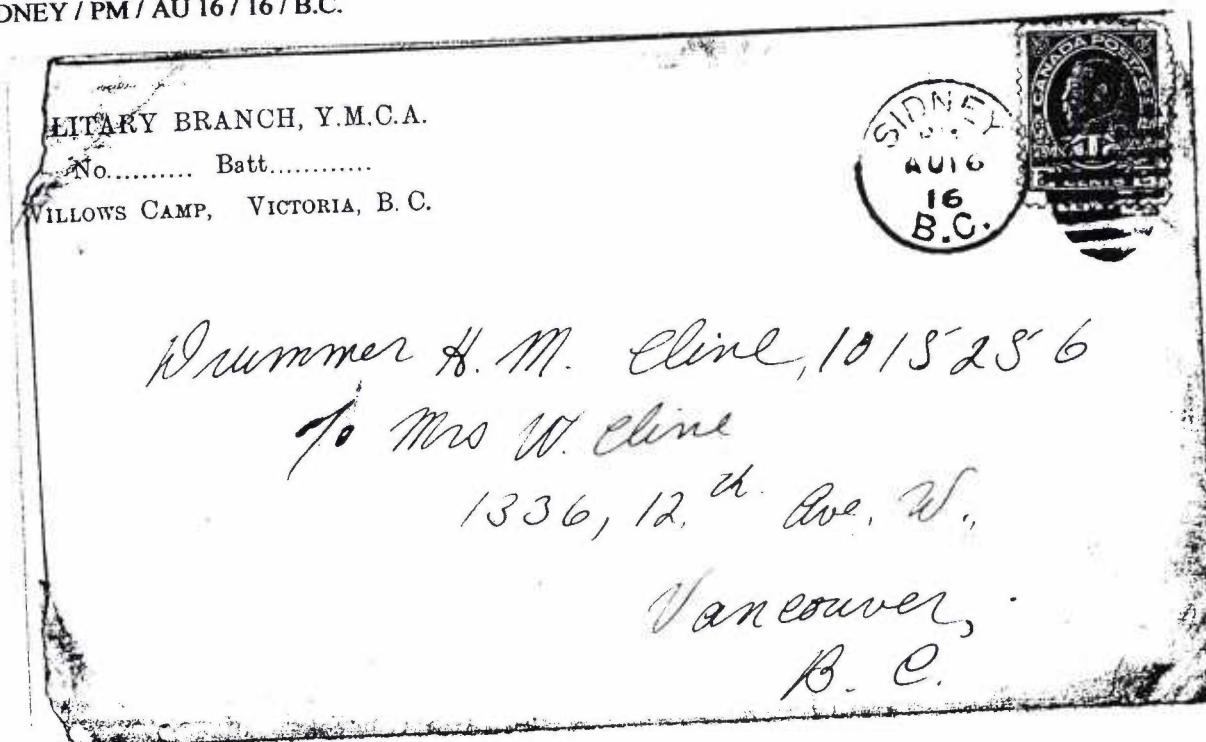 DNEY / PM / AU 16 / 16 / B.C.
LITARY BRANCH, Y.M.C.A.
No.......... Batt............
WILLOWS CAMP, VICTORIA, B. C.
SIDNEY
AU 16
16
B.C.
CANADA POSTAGE
1
CENTS
Drummer H. M. Cline, 1015256
c/o Mrs W. Cline
1336, 12.th Ave. W.,
Vancouver,
B. C.